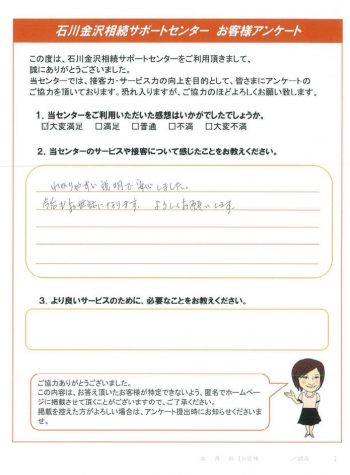 石川金沢相続サポートセンター お客様アンケート
この度は、石川金沢相続サポートセンターをご利用頂きまして、
誠にありがとうございました。
当センターでは、接客力・サービス力の向上を目的として、皆さまにアンケートの
ご協力を頂いております。恐れ入りますが、ご協力のほどよろしくお願い致します。
1．当センターをご利用いただいた感想はいかがでしたでしょうか。
☑大変満足 □満足 □普通 □不満 □大変不満
2．当センターのサービスや接客について感じたことをお教えください。
わかりやすい説明で安心しました。
今後もお世話になります。よろしくお願いします。
3．より良いサービスのために、必要なことをお教えください。
ご協力ありがとうございました。
この内容は、お答えいただいたお客様が特定できないよう、匿名でホームペー
ジに掲載させて頂くことがございますので、ご了承ください。
掲載を控えた方がよろしい場合は、アンケート提出時にお知らせくださいま
せ。
年 月 日